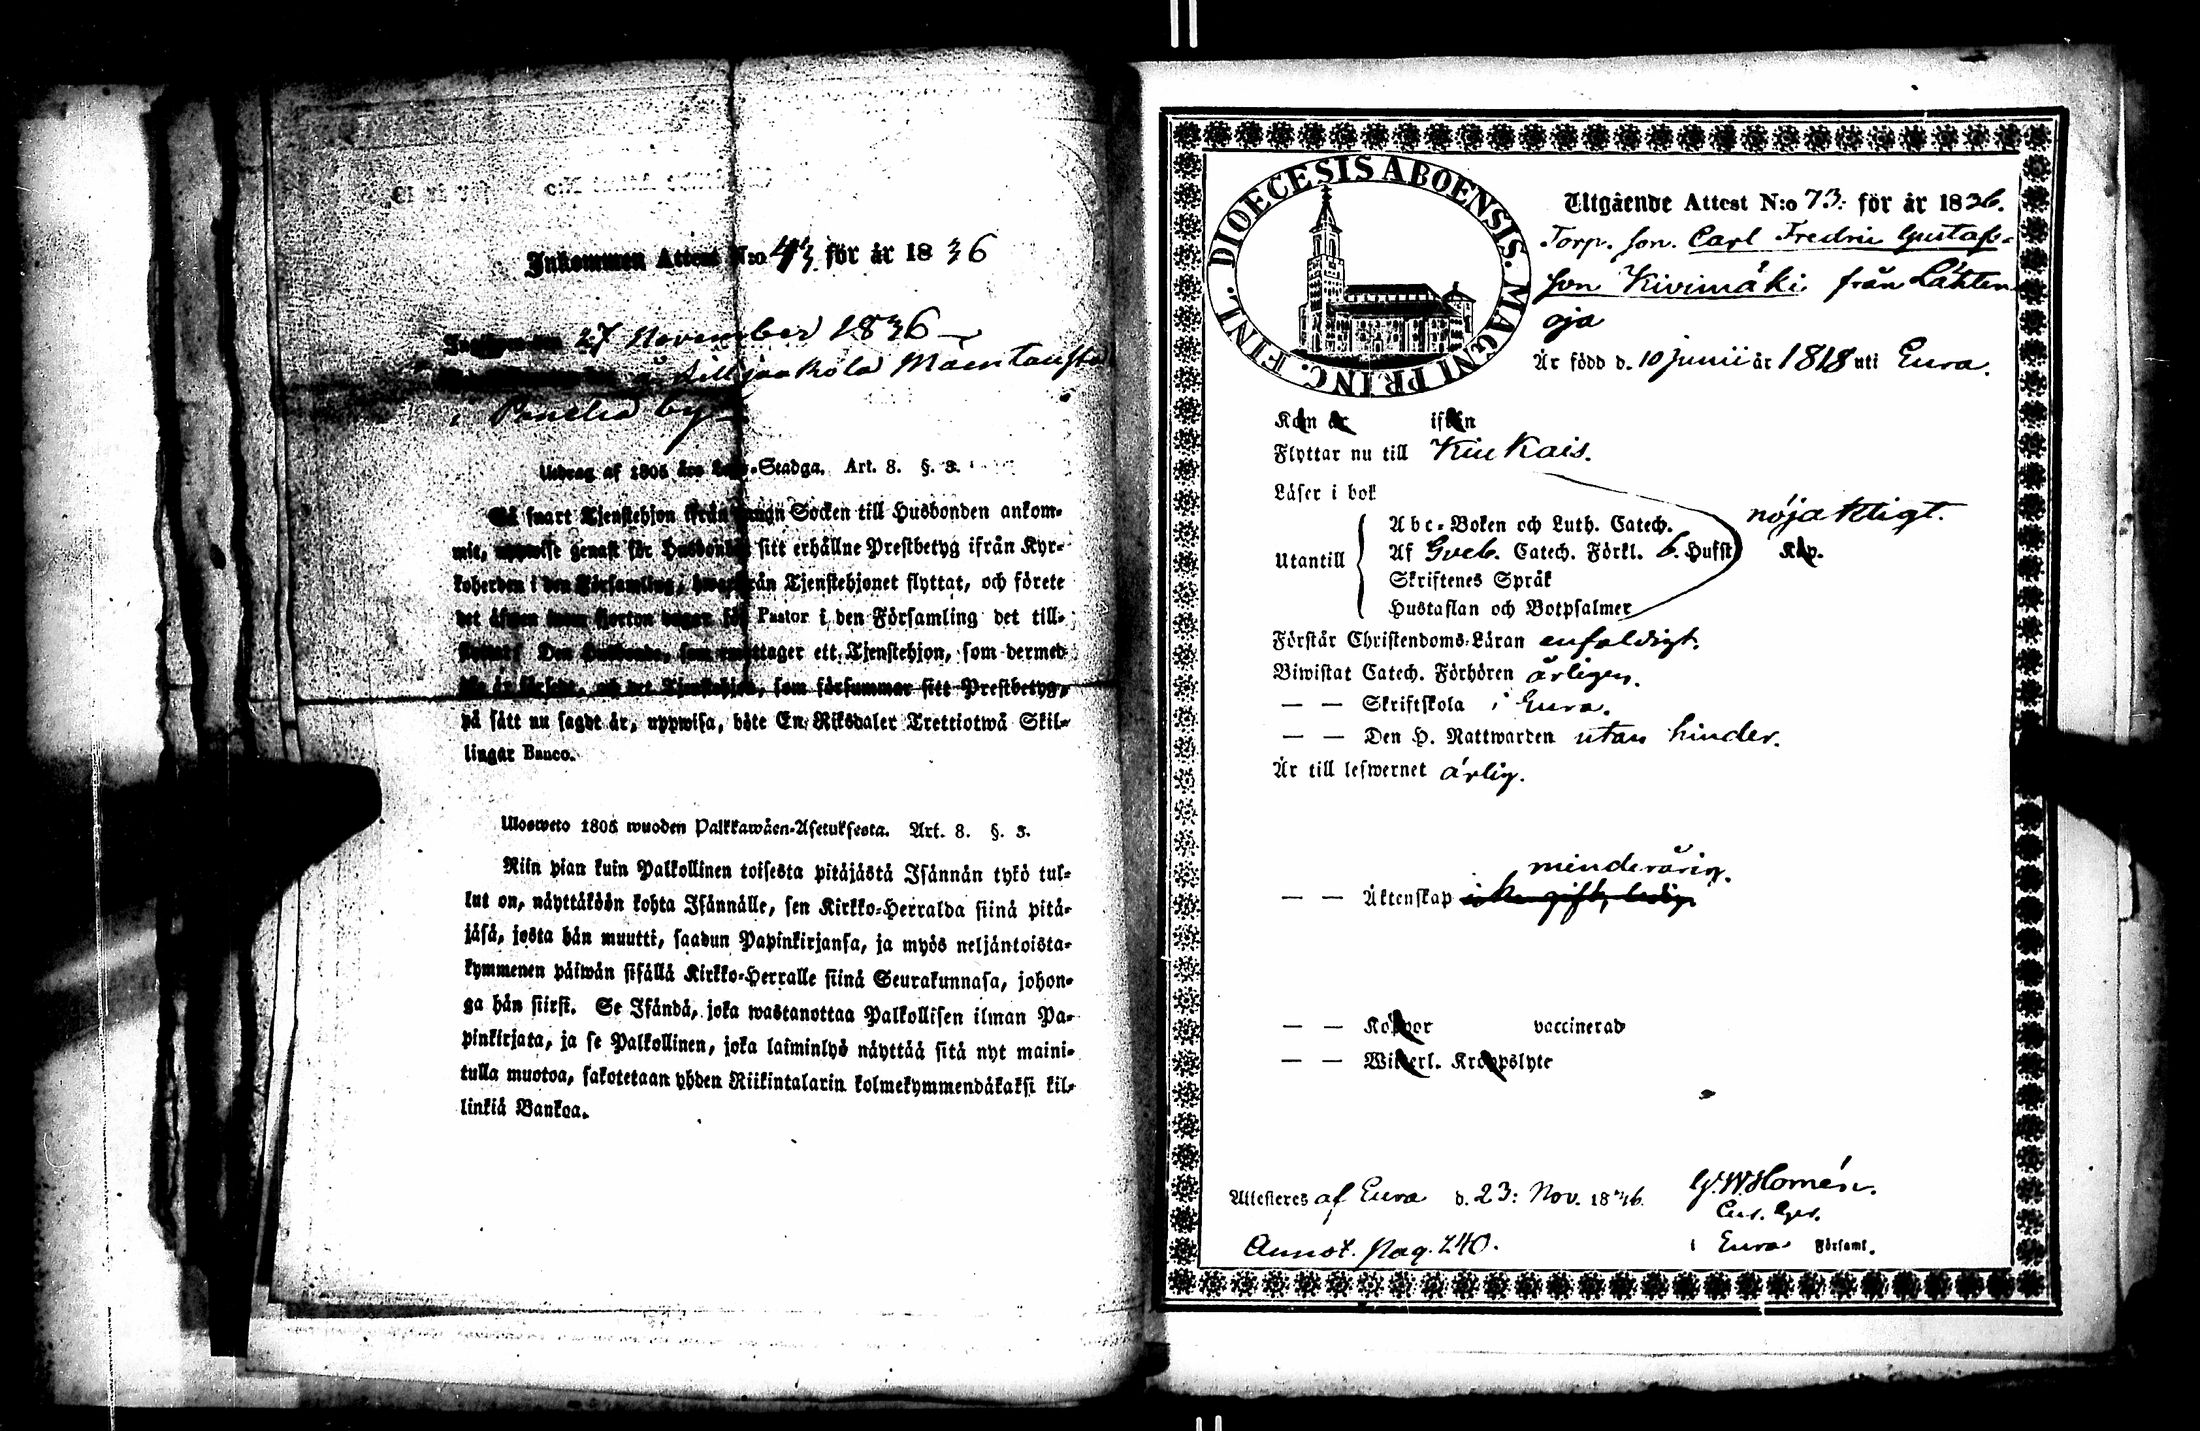 Inkommen Attest N:o 43. för år 1836
27 November 1836
Lilljaakola Mäentausta
i Panelia by
Utdrag af 1805 års Lego-Stadga. Art. 8. §. 3.
Så snart Tjenstehjon ifrån annan Socken till Husbonden ankom-
mit, uppwise genast för Husbonden sitt erhållne Prestbetyg ifrån Kyr-
koherden i den Församling, hwarifrån Tjenstehjonet flyttat, och förete
det äfwen inom fjorton dagar för Pastor i den Församling det till-
flyttat. Den Husbonde, som emottager ett Tjenstehjon, som dermed
ej är försedt, och det Tjenstehjon, som försummar sitt Prestbetyg,
på sätt nu sagdt är, uppwisa, böte En Riksdaler Trettiotwå Skil-
lingar Banco.
Ulosweto 1805 wuoden Palkkawäen-Asetuksesta. Art. 8. §. 3.
Niin pian kuin Palkollinen toisesta pitäjästä Isännän tykö tul-
lut on, näyttäköön kohta Isännälle, sen Kirkko-Herralda siinä pitä-
jäsä, josta hän muutti, saadun Papinkirjansa, ja myös neljäntoista-
kymmenen päiwän sisällä Kirkko-Herralle siinä Seurakunnasa, johon-
ga hän siirsi. Se Isändä, joka wastanottaa Palkollisen ilman Pa-
pinkirjata, ja se Palkollinen, joka laiminlyö näyttää sitä nyt maini-
tulla muotoa, sakotetaan yhden Riikintalarin kolmekymmendäkaksi kil-
linkiä Bankoa.
DIOECESIS ABOENSIS. MAGNI PRINC. FINL.
Utgående Attest N:o 73. för år 1836.
Torp. son. Carl Fredric Gustafs-
son Kivimäki från Lähten
oja
Är född d. 10 Junii år 1818 uti Eura.
Kom år ifrån
Flyttar nu till Kiukais.
Läser i bok
Utantill
Abc-Boken och Luth. Catech.
Af Sveb. Catech. Förkl. 6. Hufst. Kap.
Skriftenes Språk
Hustaflan och Botpsalmer
nöjaktligt.
Förstår Christendoms-Läran enfaldigt.
Biwistat Catech. Förhören årligen.
— — Skriftskola i Eura.
— — Den H. Nattwarden utan hinder.
Är till lefwernet ärlig.
minderårig.
— — Äktenskap icke gift, ledig.
— — Koppor vaccinerad
— — Wiserl. Kroppslyte
Attesteres af Eura d. 23: Nov. 1836.
G. W. Homén.
i Eura Församl.
Annot. Pag. 240.